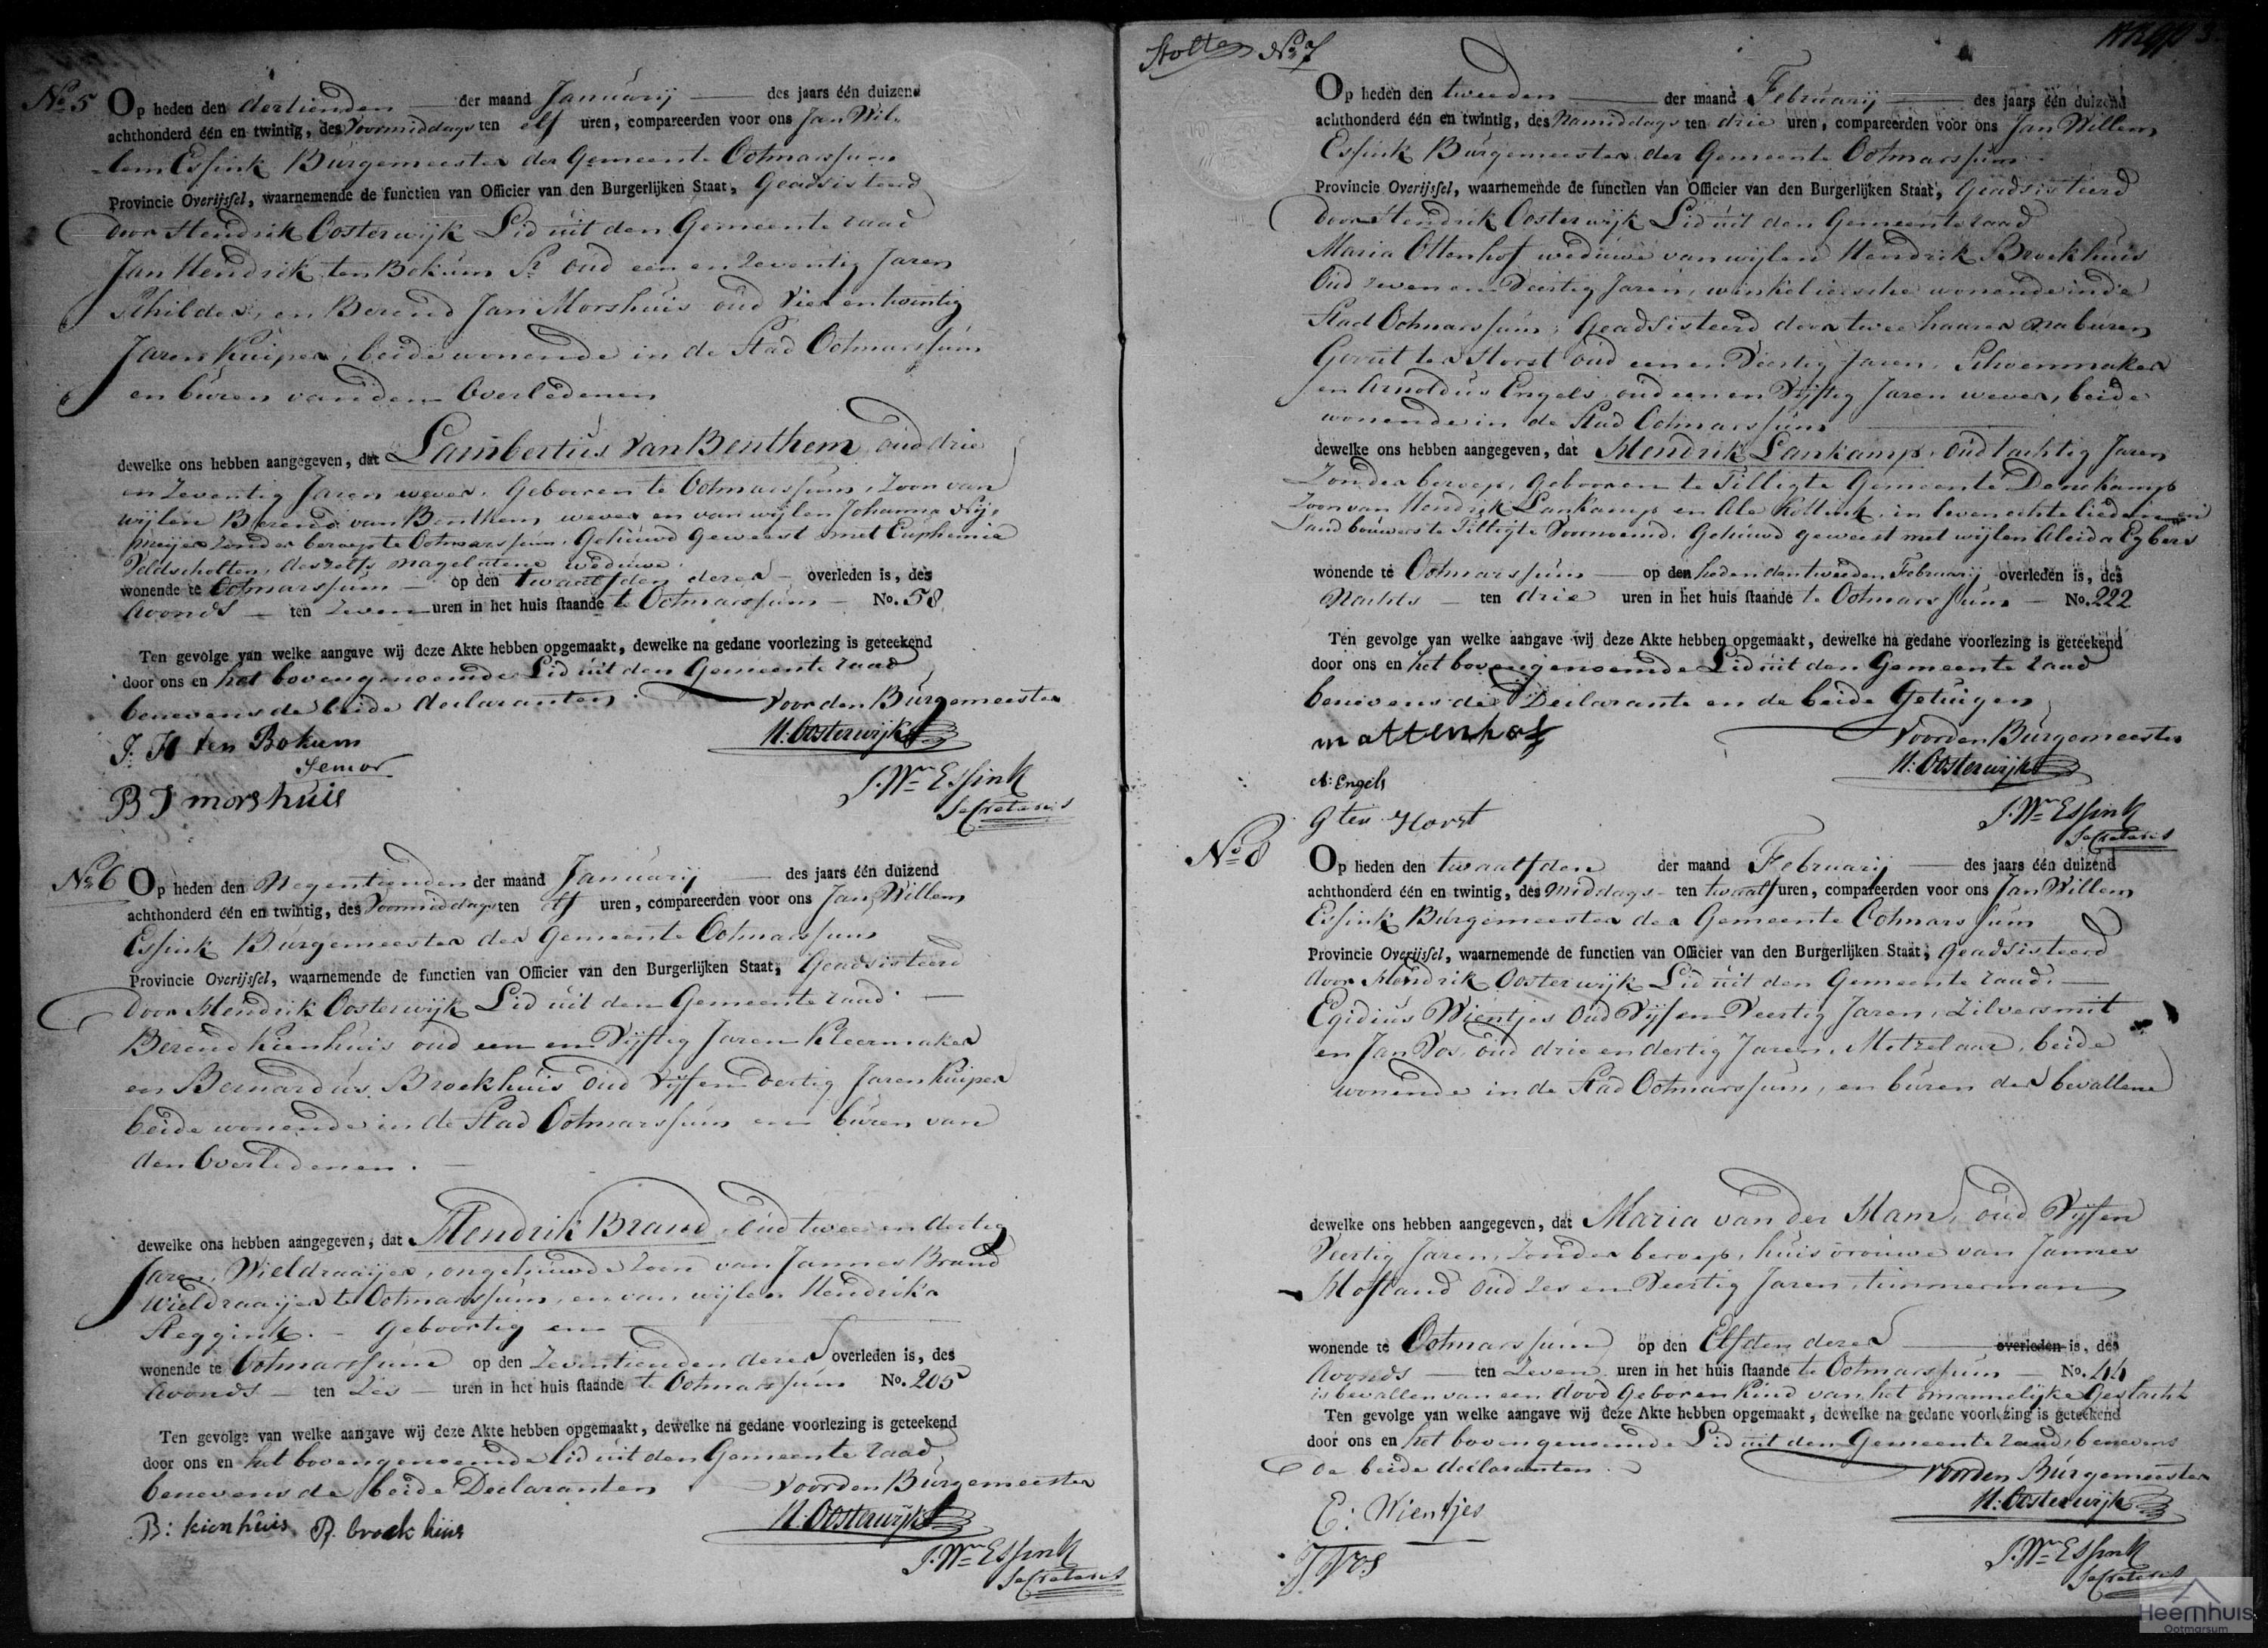 No 5 Op heden den dertienden der maand Januarij des jaars één duizend
achthonderd één en twintig, des Voormiddags ten elf uren, compareerden voor ons Jan Wil-
lem Essink Burgemeester der Gemeente Ootmarssum
Provincie Overijssel, waarnemende de functien van Officier van den Burgerlijken Staat, Geadsisteerd
door Hendrik Oosterwijk Lid uit den Gemeente raad
Jan Hendrik ten Bokum Sr oud een en zeventig Jaren
Schilder, en Berend Jan Morshuis oud vier en twintig
Jaren Kuiper, beide wonende in de Stad Ootmarssum
en buren van den Overledenen
dewelke ons hebben aangegeven, dat Lambertus van Benthem, oud drie
en zeventig Jaren wever, Gebooren te Ootmarssum, Zoon van
wijlen Berend van Benthem wever en van wijlen Johanna
meijer zonder beroep te Ootmarssum, Gehuwd Geweest met Euphemia
Veldscholten, deszelfs nagelatene weduwe.
wonende te Ootmarssum op den twaalfden dezer overleden is, des
Avonds ten zeven uren in het huis staande te Ootmarssum No. 58
Ten gevolge van welke aangave wij deze Akte hebben opgemaakt, dewelke na gedane voorlezing is geteekend
door ons en het bovengenoemde Lid uit den Gemeente raad
benevens de beide declaranten
voor den Burgemeester
J. H ten Bokum
H: Oosterwijk
Senior
J. Wm Essink
B J morshuis
Secretaris
No 6 Op heden den Negentienden der maand Januarij des jaars één duizend
achthonderd één en twintig, des Voormiddags ten elf uren, compareerden voor ons Jan Willem
Essink Burgemeester der Gemeente Ootmarssum
Provincie Overijssel, waarnemende de functien van Officier van den Burgerlijken Staat, Geadsisteerd
Door Hendrik Oosterwijk Lid uit den Gemeente raad
Berend Kienhuis oud een en Vijftig Jaren Kleermaker
en Bernardus Broekhuis oud vijf en dertig Jaren Kuiper
beide wonende in de Stad Ootmarssum en buren van
den Overledenen.
dewelke ons hebben aangegeven, dat Hendrik Brand, oud twee en dertig
Jaren, Wieldraaijer, ongehuwde Zoon van Jannes Brand
Wieldraaijer te Ootmarssum, en van wijlen Hendrika
Reggink. Geboortig en
wonende te Ootmarssum op den Zeventienden dezer overleden is, des
Avonds ten Zes uren in het huis staande te Ootmarssum No. 205
Ten gevolge van welke aangave wij deze Akte hebben opgemaakt, dewelke na gedane voorlezing is geteekend
door ons en het bovengenoemde lid uit den Gemeente raad
benevens de beide Declaranten
voor den Burgemeester
B: kienhuis B. broek huis
H: Oosterwijk
J. Wm Essink
Secretaris
Stolte No 7
Op heden den tweeden der maand Februarij des jaars één duizend
achthonderd één en twintig, des Namiddags ten drie uren, compareerden voor ons Jan Willem
Essink Burgemeester der Gemeente Ootmarssum
Provincie Overijssel, waarnemende de functien van Officier van den Burgerlijken Staat, Geadsisteerd
door Hendrik Oosterwijk Lid uit den Gemeente raad
Maria Ottenhof weduwe van wijlen Hendrik Broekhuis
Oud zeven en Veertig Jaren, winkeliersche wonende in de
Stad Ootmarssum, Geadsisteerd door twee haarer naburen
Gerrit ter Horst oud een en Veertig Jaren, Schoenmaker
en Arnoldus Engels oud een en Vijftig Jaren wever, beide
wonende in de Stad Ootmarssum
dewelke ons hebben aangegeven, dat Hendrik Lankamp, oud tachtig Jaren
Zonder beroep, Gebooren te Tilligte Gemeente Denekamp
Zoon van Hendrik Lankamp en Ale Kottink, in leven echte lieden en
Landbouwers te Tilligte Voornoemd. Gehuwd geweest met wijlen Aleida Egbers
wonende te Ootmarssum op den heden den tweeden Februarij overleden is, des
Nachts ten drie uren in het huis staande te Ootmarssum No. 222
Ten gevolge van welke aangave wij deze Akte hebben opgemaakt, dewelke na gedane voorlezing is geteekend
door ons en het bovengenoemde Lid uit den Gemeente raad
benevens de Declarante en de beide Getuigen
m attenhof
voor den Burgemeester
H: Oosterwijk
A: Engels
J. Wm Essink
g ter Horst
Secretaris
No 8 Op heden den twaalfden der maand Februarij des jaars één duizend
achthonderd één en twintig, des Middags ten twaalf uren, compareerden voor ons Jan Willem
Essink Burgemeester der Gemeente Ootmarssum
Provincie Overijssel, waarnemende de functien van Officier van den Burgerlijken Staat, Geadsisteerd
door Hendrik Oosterwijk Lid uit den Gemeente raad.
Egidius Wientjes Oud Vijf en Veertig Jaren, Zilversmit
en Jan Vos, oud drie en dertig Jaren, Metzelaar, beide
wonende in de Stad Ootmarssum, en buren der bevallene
dewelke ons hebben aangegeven, dat Maria van der Ham, oud Vijf en
Veertig Jaren, zonder beroep, huisvrouwe van Jannes
Hofland oud zes en Veertig Jaren, timmerman
wonende te Ootmarssum op den Elfden dezer overleden is, des
Avonds ten Zeven uren in het huis staande te Ootmarssum No. 44
is bevallen van een dood geboren Kind van het mannelijke Geslacht
Ten gevolge van welke aangave wij deze Akte hebben opgemaakt, dewelke na gedane voorlezing is geteekend
door ons en het bovengenoemde Lid uit den Gemeente raad, benevens
de beide declaranten
voor den Burgemeester
E: Wientjes
H: Oosterwijk
J Vos
J. Wm Essink
Secretaris
Heemhuis
Ootmarsum